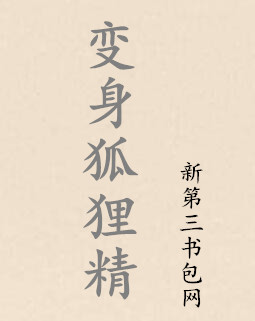 变身狐狸精
新第三书包网